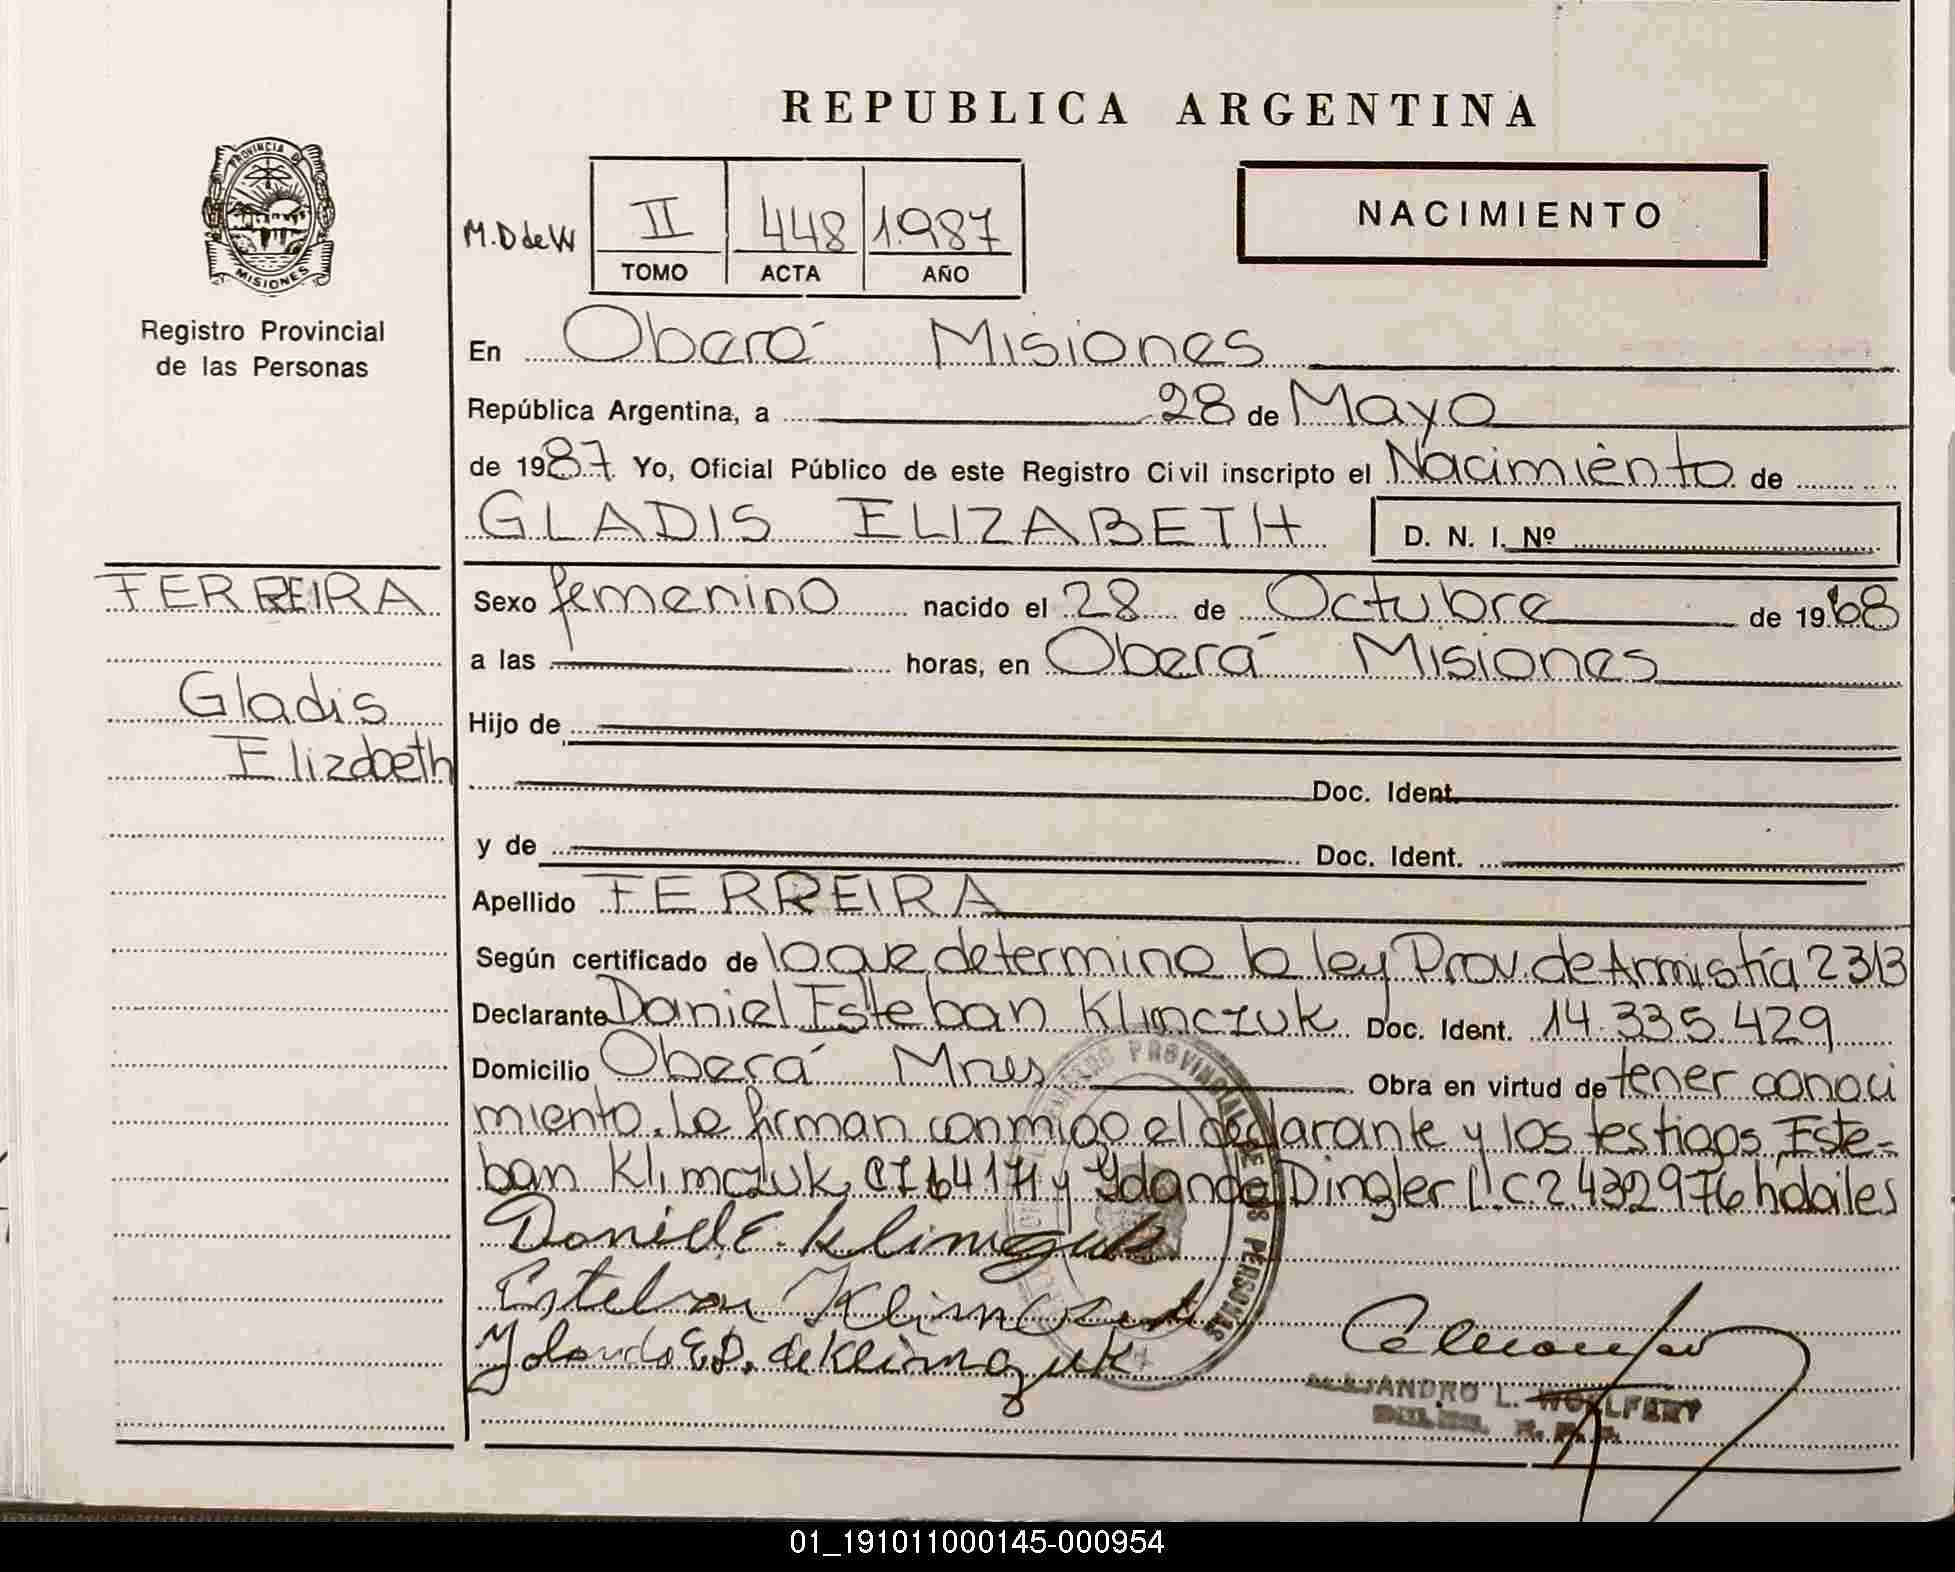 REPUBLICA ARGENTINA
PROVINCIA DE
MISIONES
Registro Provincial
de las Personas
M.D de W
II 448 1.987
TOMO ACTA AÑO
NACIMIENTO
En Oberá Misiones
República Argentina, a 28 de Mayo
de 1987. Yo, Oficial Público de este Registro Civil inscripto el Nacimiento de
GLADIS ELIZABETH D. N. I. Nº
FERREIRA
Gladis
Elizabeth
Sexo femenino nacido el 28 de Octubre de 1968
a las horas, en Oberá Misiones
Hijo de
Doc. Ident.
y de Doc. Ident.
Apellido FERREIRA
Según certificado de lo que determina la ley Prov. de Armistía 2313
Declarante Daniel Esteban Klimczuk Doc. Ident. 14.335.429
Domicilio Oberá Mnes Obra en virtud de tener conoci
miento. La firman conmigo el declarante y los testigos Este-
ban Klimczuk, CI 64171 y Dingler L.C 2432976 hábiles
Daniel E. Klimczuk
Esteban Klimczuk
Yolanda E.D. de Klimczuk
REGISTRO PROVINCIAL DE LAS PERSONAS
ALEJANDRO L. WOELFERT
01_191011000145-000954